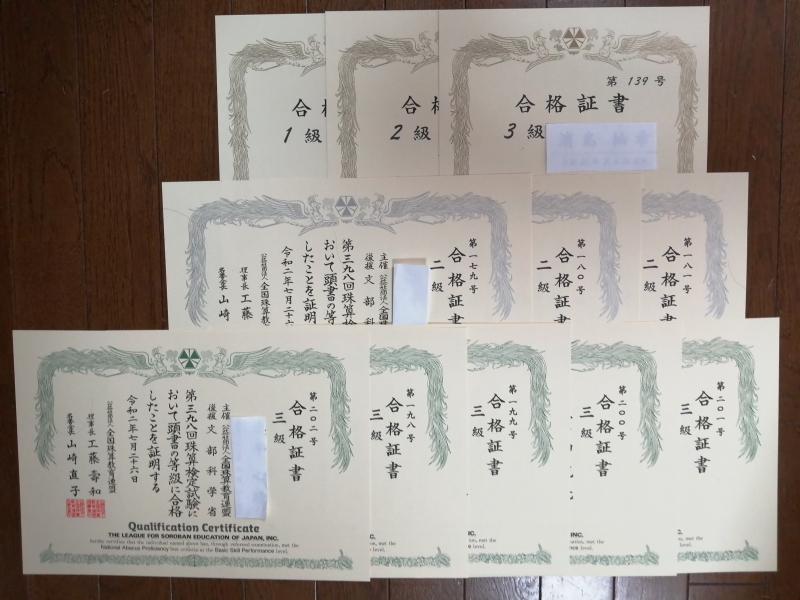 合格
1級
合格
2級
第139号
合格証書
3級
第一七九号
合格証書
二級
主催 公益社団法人 全国珠算教
後援 文部科
第三九八回珠算検
おいて頭書の等
したことを証明
令和二年七月二十六
公益社団法人 全国珠算教
理事長 工藤
名誉会長 山崎
第一八〇号
合格証書
二級
第一八一号
合格証書
二級
第二〇二号
合格証書
三級
主催 公益社団法人 全国珠算教育連盟
後援 文部科学省
第三九八回珠算検定試験に
おいて頭書の等級に合格
したことを証明する
令和二年七月二十六日
公益社団法人 全国珠算教育連盟
理事長 工藤壽和
名誉会長 山崎直子
Qualification Certificate
THE LEAGUE FOR SOROBAN EDUCATION OF JAPAN, INC.
hereby certifies that the individual named above has, through referred examination, met the
National Abacus Proficiency test criteria at the Basic Skill Performance level.
第一九八号
合格証書
三級
INC.
met the
level.
第一九九号
合格証書
三級
INC.
met the
nce level.
第二〇〇号
合格証書
三級
INC.
met the
nce level.
第二〇一号
合格証書
三級
INC.
met the
level.